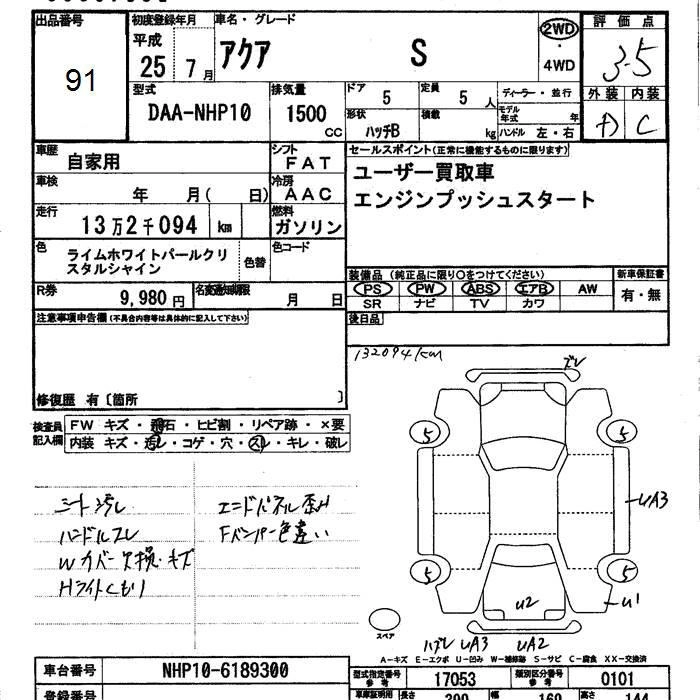 出品番号
91
初度登録年月
平成
25 7月
車名・グレード
アクア S
2WD
・
4WD
評価点
3-5
外装 内装
C
型式
DAA-NHP10
排気量
1500
CC
ドア
5
定員
5人
形状
ハッチB
積載
kg
ディーラー・並行
モデル年式 年
ハンドル 左・右
車歴
自家用
シフト
FAT
車検
年 月( 日)
冷房
AAC
走行
13万2千094 km
燃料
ガソリン
色
ライムホワイトパールクリスタルシャイン
色替
色コード
R券
9,980円
名変通知期限
月 日
セールスポイント(正常に機能するものに限ります)
ユーザー買取車
エンジンプッシュスタート
装備品(純正品に限り○をつけてください)
新車保証書
PS PW ABS エアB AW
SR ナビ TV カワ
有・無
後日品
注意事項申告欄(不具合内容等は具体的に記入して下さい)
修復歴 有〔箇所 〕
検査員記入欄
FW キズ・飛石・ヒビ割・リペア跡・×要
内装 キズ・汚レ・コゲ・穴・スレ・キレ・破レ
132094km
ズレ
シート汚レ
ハンドルスレ
Wカバー欠損・キズ
Hライトくもり
エンドパネル歪み
Fバンパー色違い
5
5
UA3
5
5
U2
U1
スペア
ハズレ UA3 UA2
A-キズ E-エクボ U-凹み W-補修跡 S-サビ C-腐食 XX-交換済
車台番号
NHP10-6189300
型式指定番号
参考
17053
類別区分番号
参考
0101
登録番号
車庫証明用
長さ
390
幅
160
高さ
144